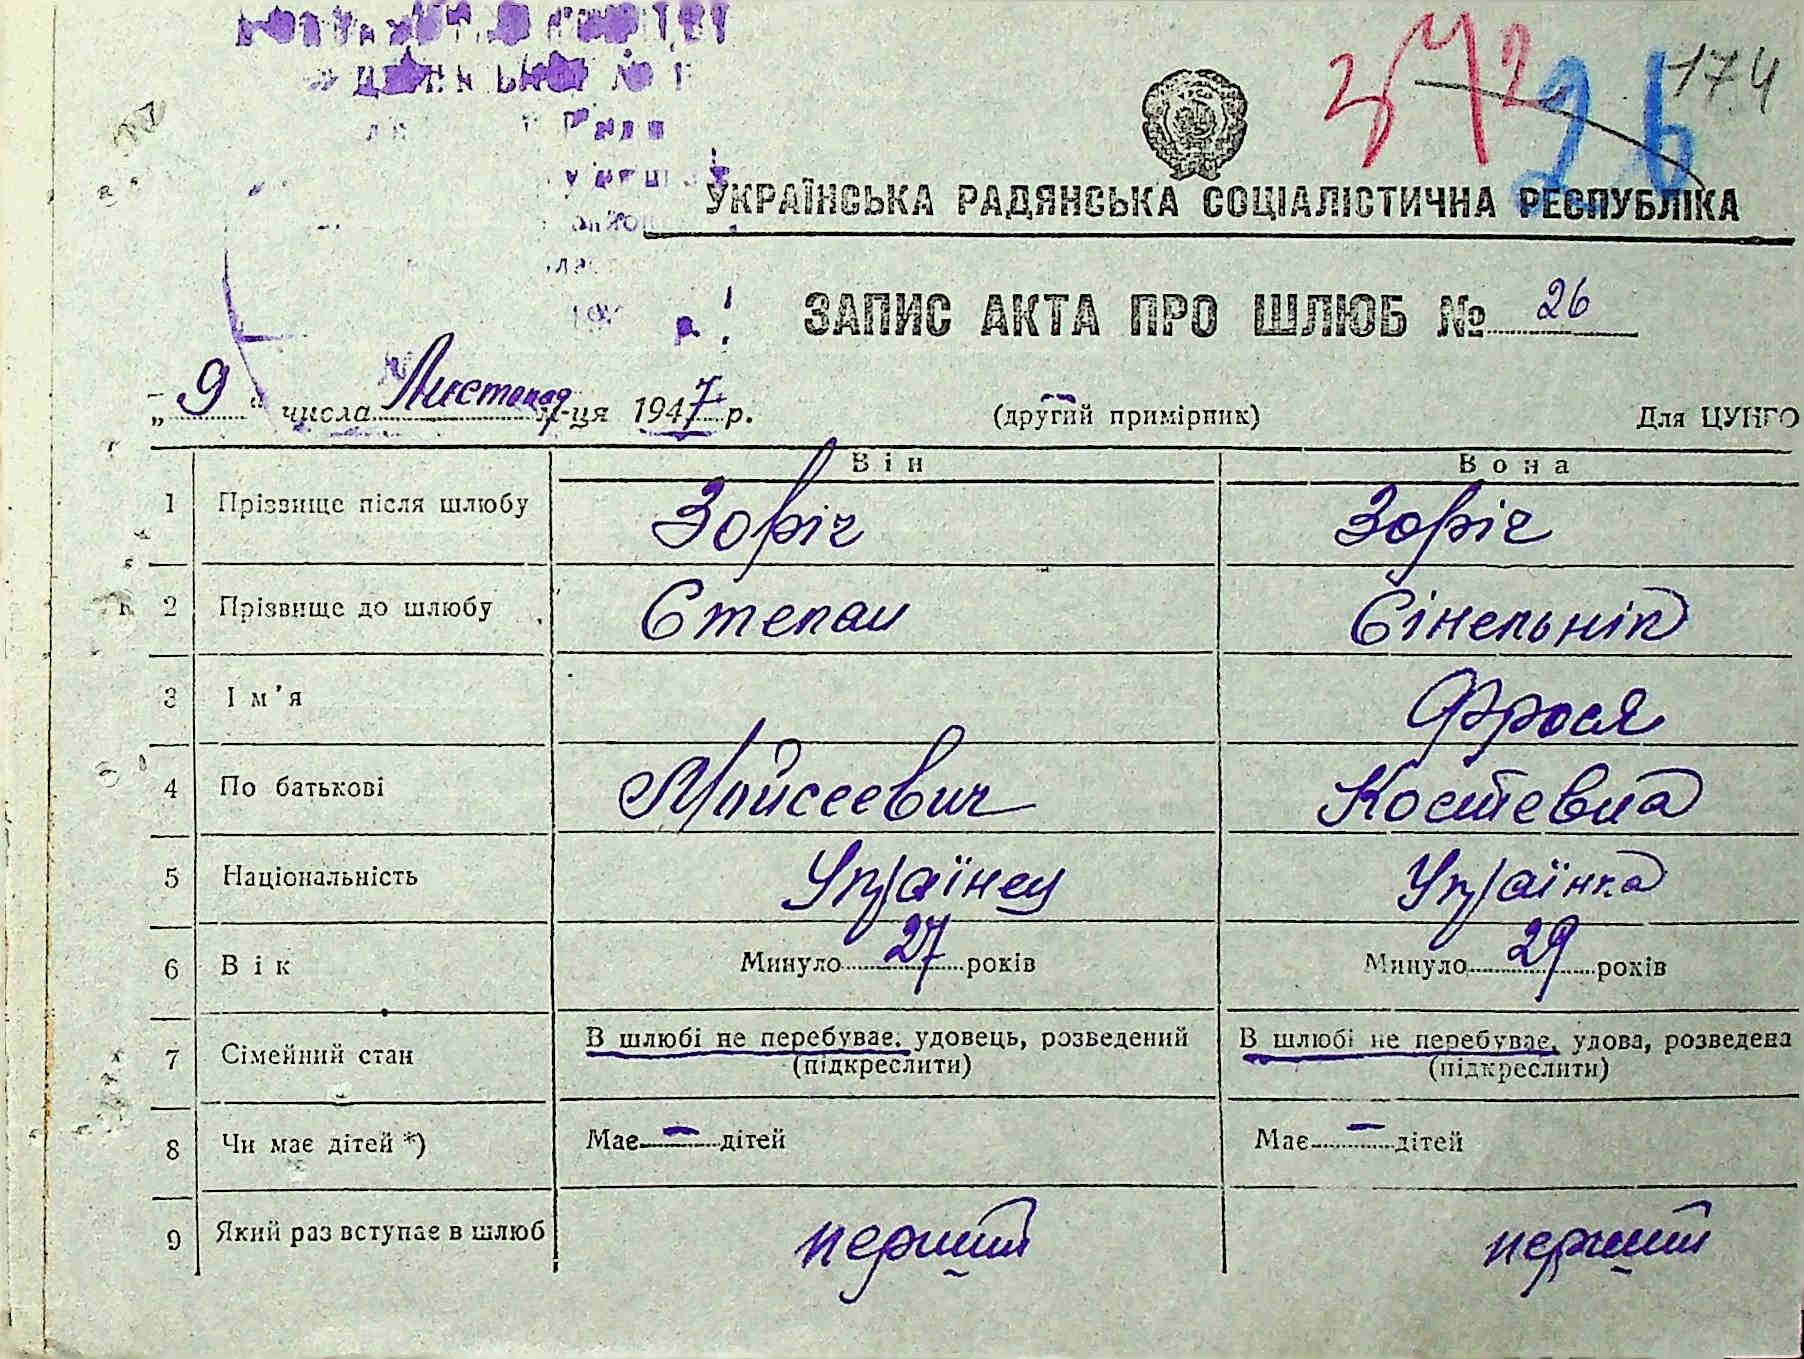 372 26 174
УКРАЇНСЬКА РАДЯНСЬКА СОЦІАЛІСТИЧНА РЕСПУБЛІКА
ЗАПИС АКТА ПРО ШЛЮБ № 26
„9“ числа Листопад м-ця 1947 р. (другий примірник) Для ЦУНГО
Він Вона
1 Прізвище після шлюбу Зоріч Зоріч
2 Прізвище до шлюбу Степан Сінельнік
3 Ім'я Фрося
4 По батькові Мойсеевич Костевна
5 Національність Українец Українка
6 Вік Минуло 27 років Минуло 29 років
7 Сімейний стан В шлюбі не перебуває, удовець, розведений В шлюбі не перебуває, удова, розведена
(підкреслити) (підкреслити)
8 Чи має дітей *) Має — дітей Має — дітей
9 Який раз вступає в шлюб перший перший